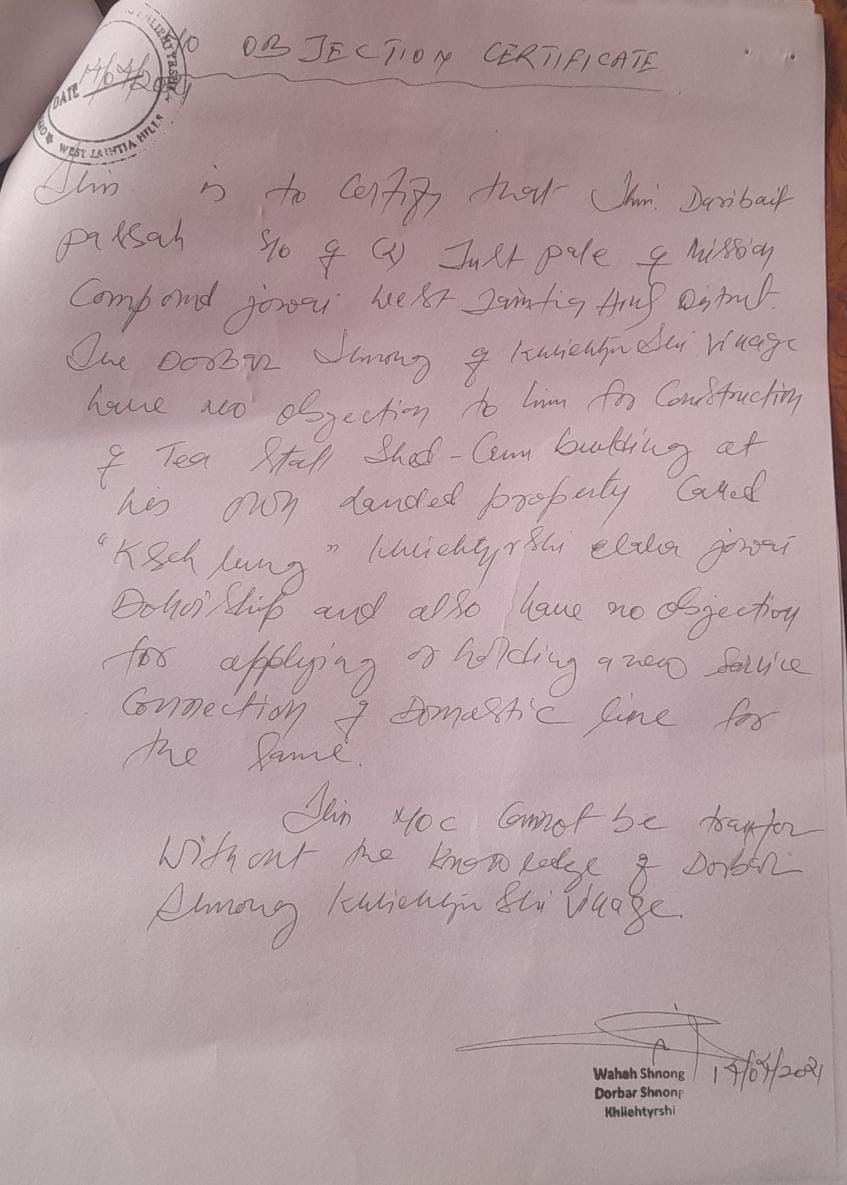 NO OBJECTION CERTIFICATE
DATE 14/07/2021
WEST JAINTIA HILLS
This is to Certify that Shri. Daribait
passah S/o of (L) Just pale of Mission
Compound jowai West Jaintia Hills District.
The Dorbar Shnong of Khliehtyrshi Village
have no objection to him for Construction
of Tea Stall Shed-Cum building at
his own landed property Called
"Ksch lung" Khliehtyrshi elaka jowai
Doloiship and also have no objection
for applying or holding a new Service
Connection of Domestic line for
the Same.
This NOC Cannot be transfer
Without the Knowledge of Dorbar
Shnong Khliehtyrshi Village.
Wahah Shnong
Dorbar Shnong
Khliehtyrshi
14/07/2021